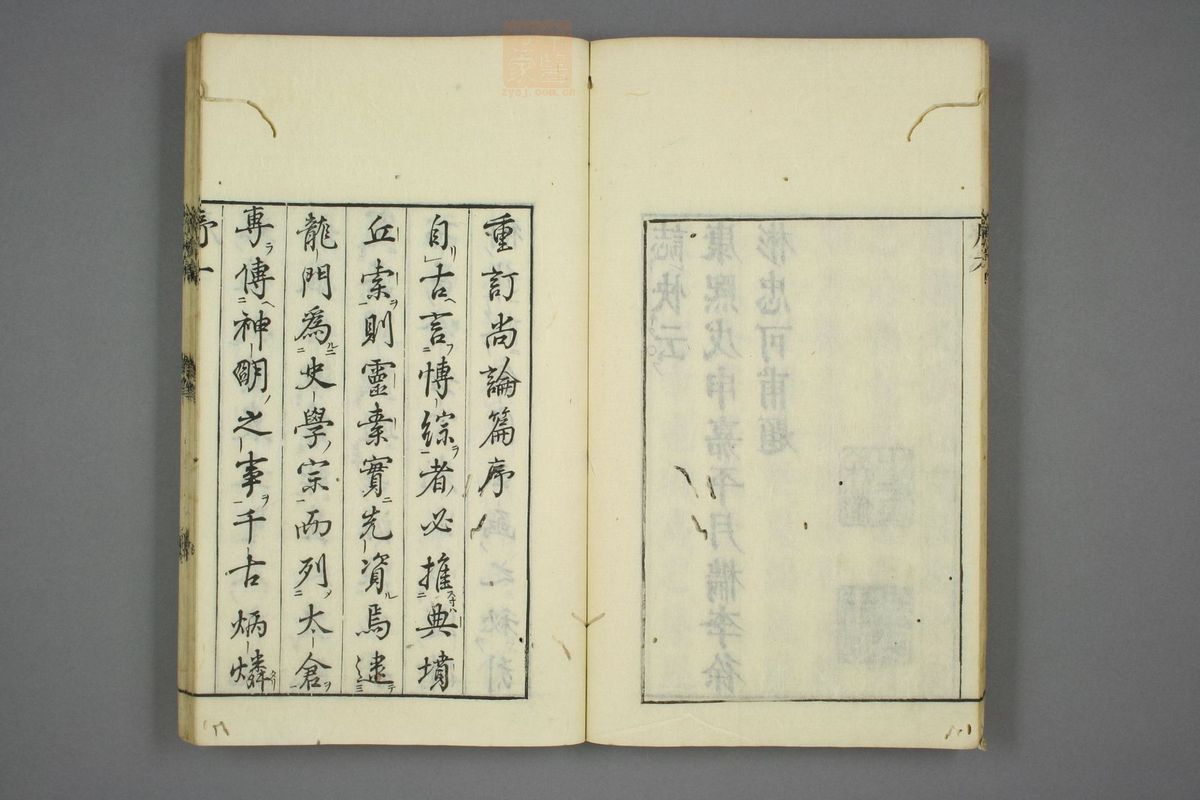 重訂尚論篇序
自古言博綜者必推典墳
丘索則靈素實先資焉逮
龍門爲史學宗而列太倉
專傳神明之事千古炳燐
序一
zysj.com.cn